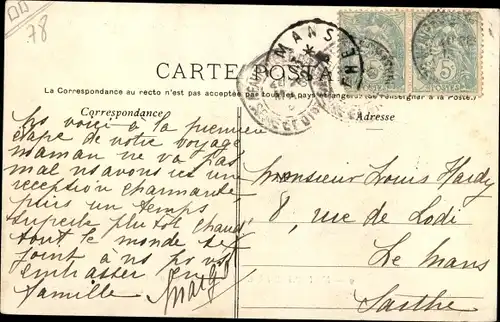 78
CARTE POSTALE
La Correspondance au recto n'est pas acceptée par tous les pays étrangers. (Se renseigner à la Poste.)
Correspondance
Adresse
MANS
SEINE ET OISE
5
POSTES
Ns voici à la première
étape de votre voyage
Maman ne va pas
mal ns avons ici un
réception charmante,
puis un temps
superbe plutôt chaud,
tout le monde se
joint à ns pr vs
embrasser
famille
Margt
Monsieur Louis Hardy
8, rue de Lodi
Le Mans
Sarthe